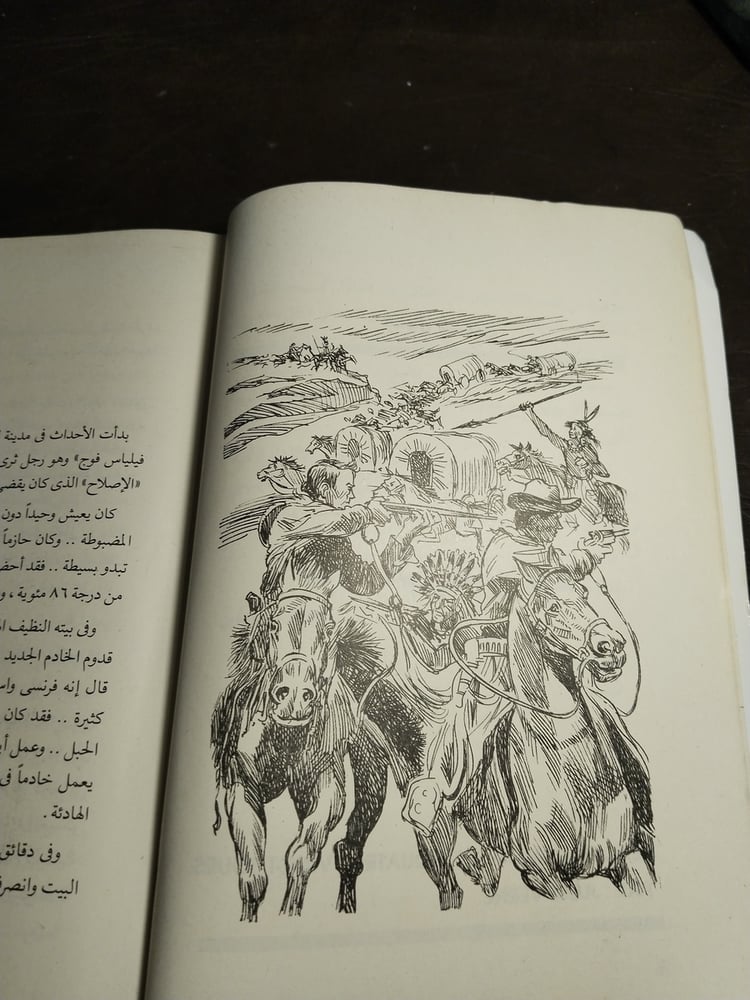 بدأت الأحداث فى مدينة
فيلياس فوج» وهو رجل ثرى
«الإصلاح» الذى كان يقضى
كان يعيش وحيداً دون
المضبوطة .. وكان حازماً
تبدو بسيطة .. فقد
من درجة ٨٦ مئوية ، و
وفى بيته النظيف
قدوم الخادم الجديد
قال إنه فرنسى
كثيرة .. فقد كان
الحبل .. وعمل
يعمل خادماً فى
الهادئة .
وفى دقائق
البيت